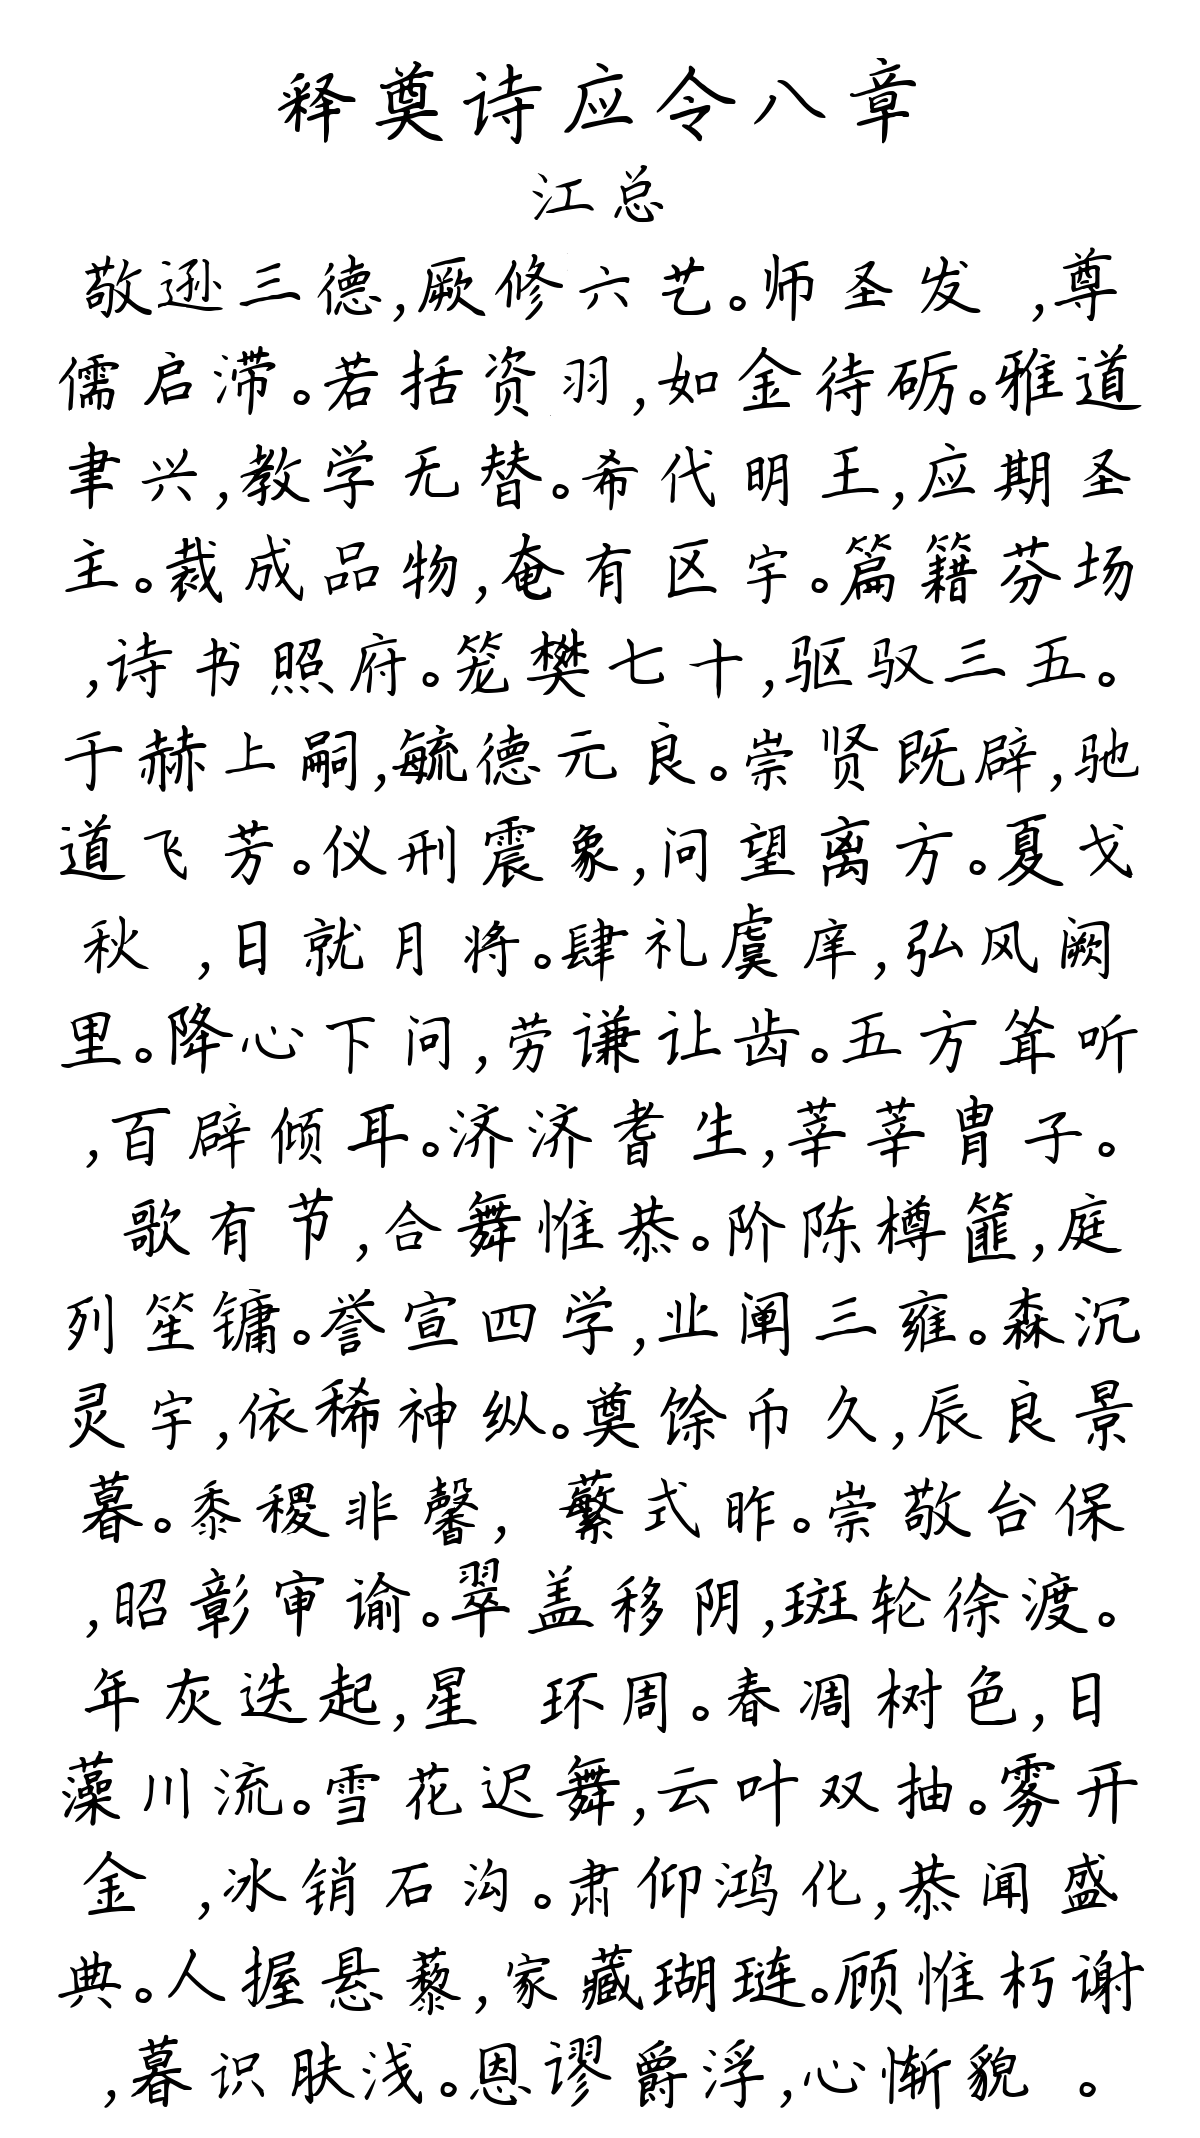 释奠诗应令八章
江总
敬逊三德,厥修六艺。师圣发 ,尊
儒启滞。若括资羽,如金待砺。雅道
聿兴,教学无替。希代明王,应期圣
主。裁成品物,奄有区宇。篇籍芬场
,诗书照府。笼樊七十,驱驭三五。
于赫上嗣,毓德元良。崇贤既辟,驰
道飞芳。仪刑震象,问望离方。夏戈
秋 ,日就月将。肆礼虞庠,弘风阙
里。降心下问,劳谦让齿。五方耸听
,百辟倾耳。济济耆生,莘莘胄子。
歌有节,合舞惟恭。阶陈樽篚,庭
列笙镛。誉宣四学,业阐三雍。森沉
灵宇,依稀神纵。奠馀币久,辰良景
暮。黍稷非馨, 蘩式昨。崇敬台保
,昭彰审谕。翠盖移阴,斑轮徐渡。
年灰迭起,星 环周。春凋树色,日
藻川流。雪花迟舞,云叶双抽。雾开
金 ,冰销石沟。肃仰鸿化,恭闻盛
典。人握悬藜,家藏瑚琏。顾惟朽谢
,暮识肤浅。恩谬爵浮,心惭貌 。